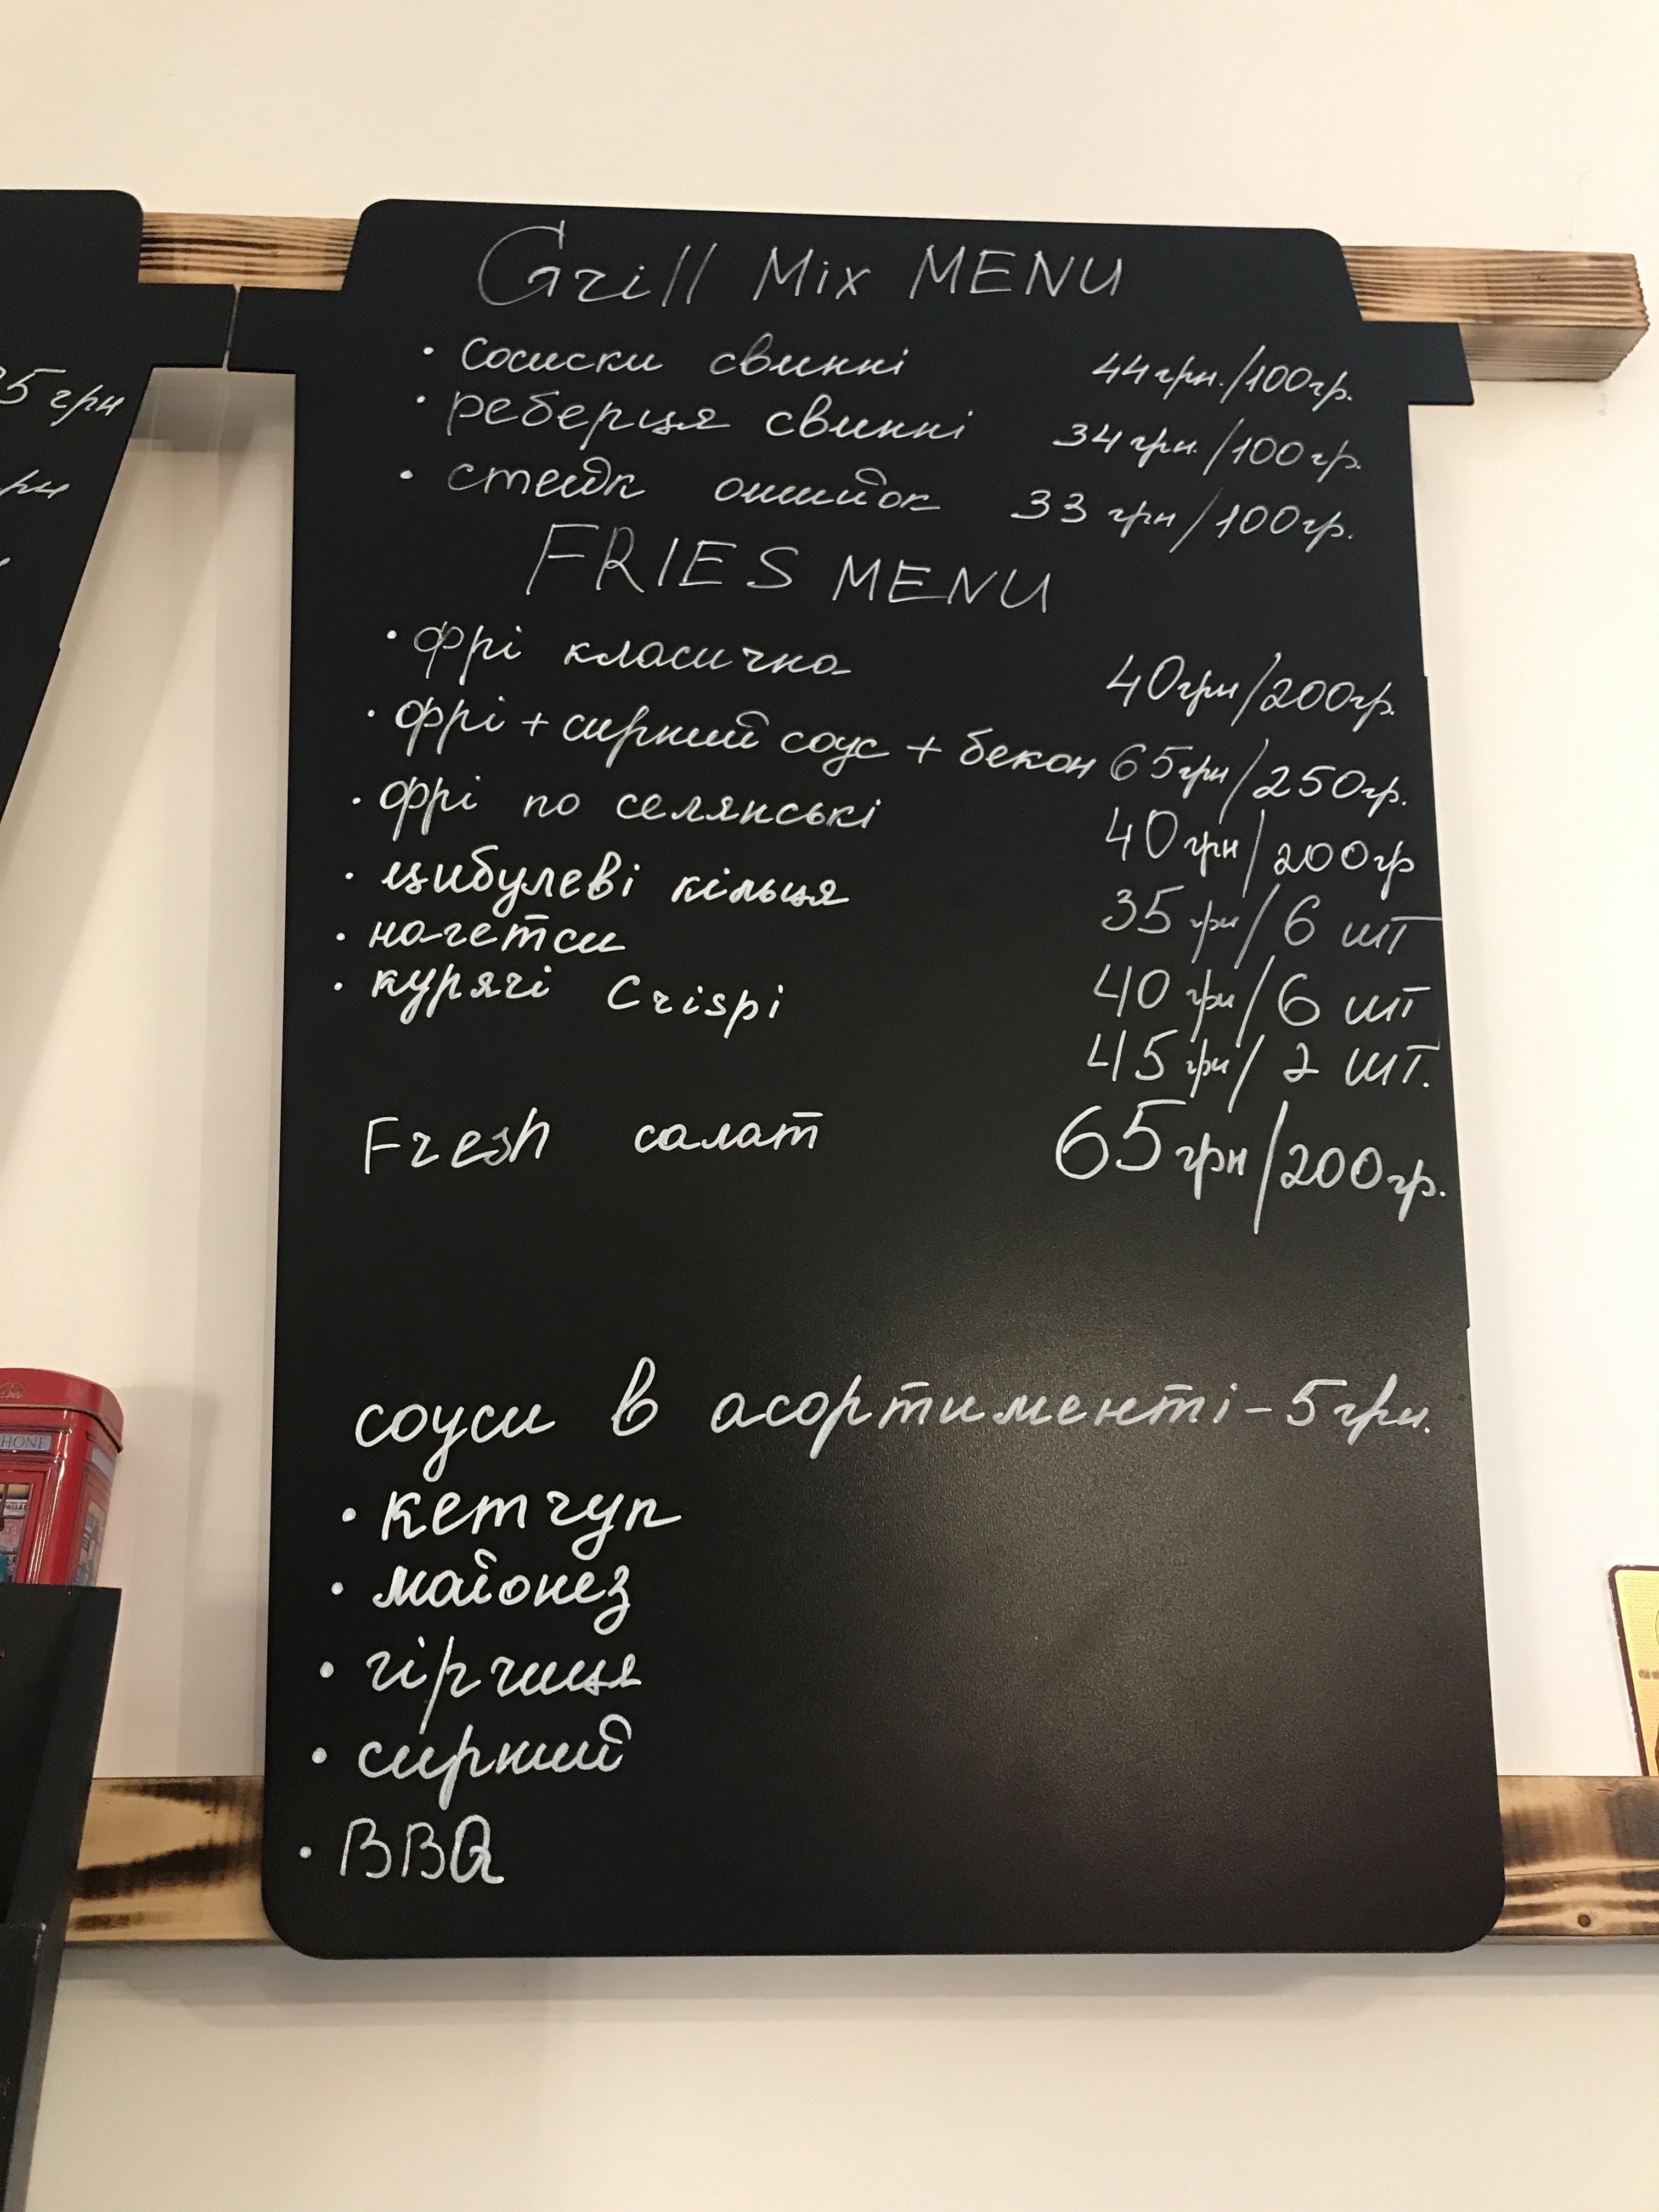 Grill Mix MENU
• сосиски свинні 44грн./100гр.
• реберця свинні 34грн./100гр.
• стейк ошийок 33 грн/100гр.
FRIES MENU
• фрі класична 40грн/200гр.
• фрі + сирний соус + бекон 65грн/250гр.
• фрі по селянські 40грн/200гр
• цибулеві кільця 35 грн/6 шт
• нагетси 40 грн/6 шт
• курячі Crispi 45грн/2 шт.
Fresh салат 65грн/200гр.
соуси в асортименті - 5грн.
• кетчуп
• майонез
• гірчиця
• сирний
• BBQ
5 грн
рн
PHONE